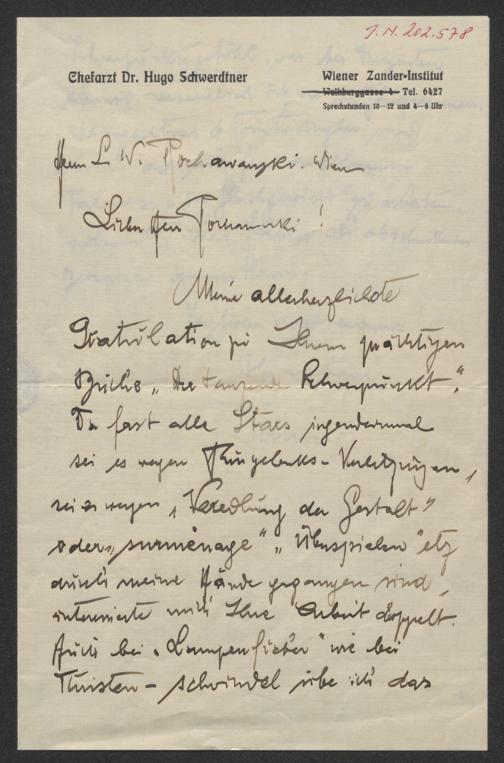 J.N. 202.578
Chefarzt Dr. Hugo Schwerdtner
Wiener Zander-Institut
Weihburggasse 4 - Tel. 6427
Sprechstunden 10-12 und 4-6 Uhr
Herrn L. W. Rochowanski. Wien
Lieber Herr Rochowanski!
Meine allerherzlichste
Gratulation zu Ihrem prächtigen
Buche „Der tanzende Schwerpunkt".
Da fast alle Stars irgendeinmal
sei es wegen Verletzungen,
sei es wegen „Veredlung der Gestalt"
oder „surménage" „Überspielen" etz
durch meine Hände gegangen sind,
interessierte mich Ihre Arbeit doppelt.
Auch bei „Lampenfieber" wie bei
Touristen-schwindel übe ich das